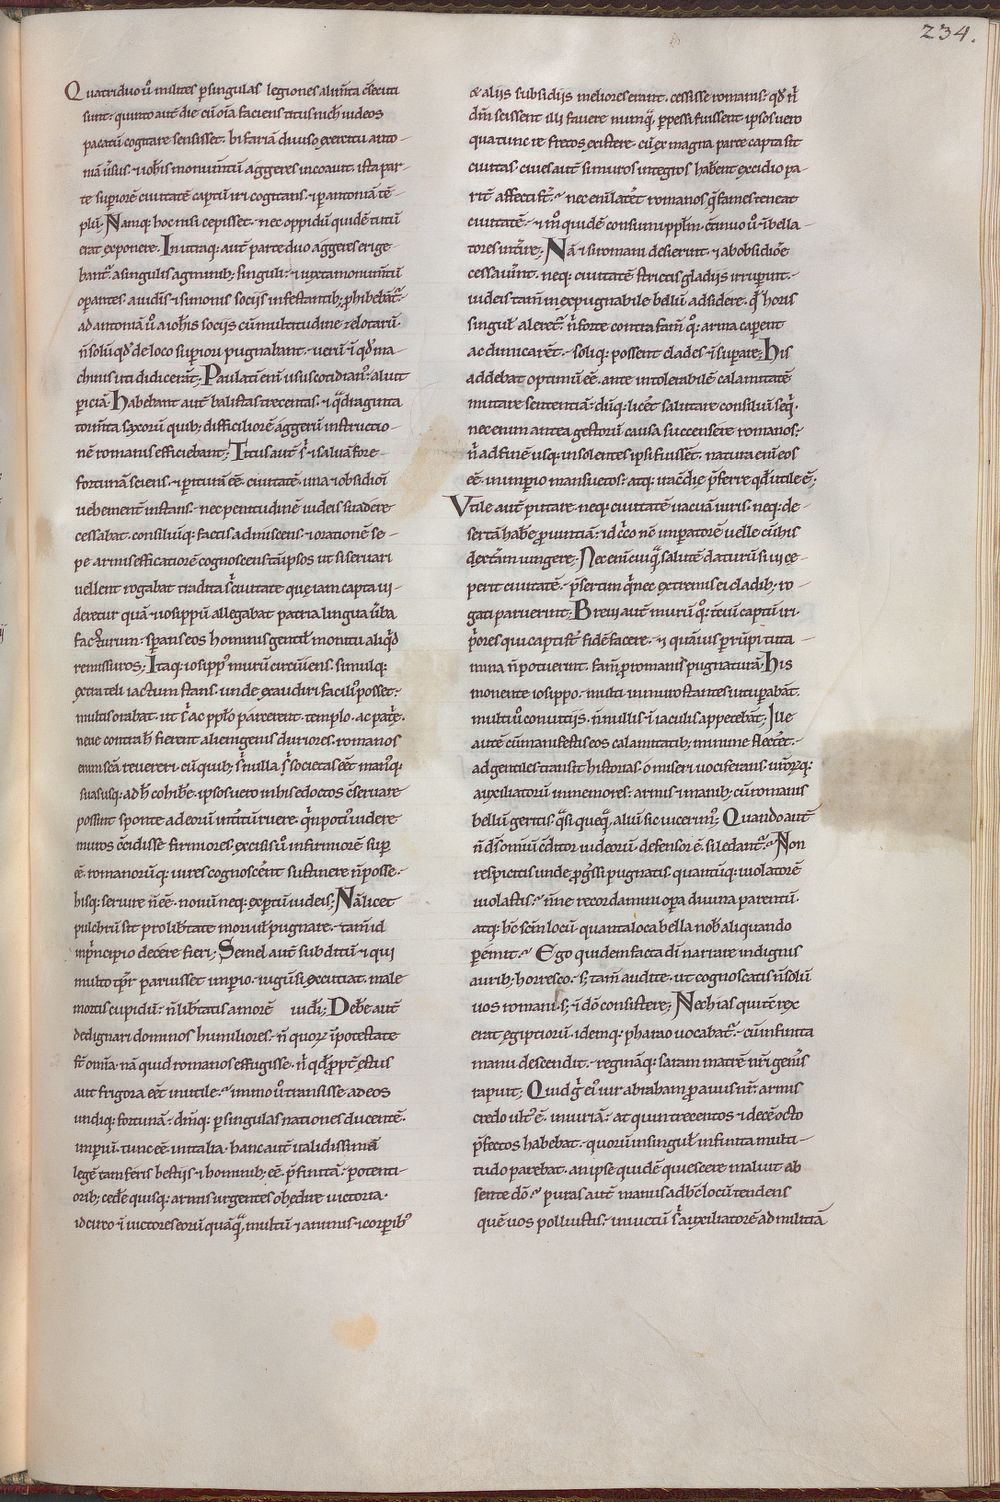 234.
Quatriduo ů milites p singulas legiones alim̃ta c̄secuti
sunt· quinto aut̄ die cū om̄a faciens titus nichil iudeos
pacatū cogitare sensisset· bifariā diuiso exercitu anto-
niā ůsus· ⁊ iohīs monum̄tū aggeres incoauit· ista par-
te supiorē ciuitatē captū iri cogitans· ⁊ p antoniā tē-
plū· Namq; hoc nisi cepisset· nec oppidū quidē tutū
erat exponere· In utraq; aut̄ parte duo aggeres erige-
bant͛ a singulis agminib; singuli· ⁊ iuxta monum̄tū
opantes· auidīs ⁊ simonis socijs infestantib; phibebāt͛·
ad antoniā ů a iohīs socijs cū multitudine zelotarū·
n̄ solū qđ de loco supiori pugnabant· uerū ⁊ qđ ma-
chinis uti didicerāt; Paulatī enī usus cotidian᷒ aluit
piciā· habebant aut̄ balistas trecentas· ⁊ q̈draginta
torm̄ta saxorū quib; difficiliorē aggerū instructio-
nē romanis efficiebant; Titus aut̄ s͛ ⁊ saluā fore
fortunā sciens· ⁊ piturā eē ciuitatē· una ⁊ obsidioī
uehement̄ instans· nec penitudinē iudeis suadere
cessabat· consiliūq; factis admiscens· ⁊ orationē se-
pe armis efficatiorē cognoscens tā ipsos ut si seruari
uellent rogabat tradita s͛ ciuitate que iam capta ui-
deretur quā ⁊ iosippū allegabat patria lingua ůba
facturum· spans eos hominis gentil̄ monitu aliq̇d
remissuros; Itaq; iosipp᷒ murū circūiens· simulq;
extra teli iactum stans· unde exaudiri facili᷒ posset·
multis orabat· ut s͛ ac pplo parcerent templo· ac pat͛e·
neue contra h̄ fierent alienigenis duriores· romanos
enim sc̄a reuereri· cū quib; s͛ nulla s͛ societas eēt· man᷒q;
suas usq; adh̄ cohibe· ipsos uero in his edoctos c̄seruare
possint sponte ad eorū inti͛tū ruere· q̇n poti᷒ uidere
muros c̄cidisse firmiores· excisis ů infirmiorē sup
eē· romanorūq; uires cognoscer̄t sustinere n̄ posse·
hisq; seruire n̄ eē· nouū neq; exptū iudeis; Nā licet
pulchrū sit pro lib̄tate moru͛l pugnare· tam̄ id
inprincipio decere fieri; Semel aut̄ subditū ⁊ qui
multo tp̄r paruisset impio· iugū si excutiat· male
mortis cupidū· n̄ lib̄tatis amorē uidi; Deb̄e aut̄
dedignari dominos humiliores· n̄ quor̄ in potestate
sr̄ om̄a· nā quid romanos effugisse· n͛ qđ ppt̄ estus
aut frigora eēt inutile· immo ů transisse ad eos
undiq; fortunā· dm̄q; p singulas nationes ducentē·
impiū· tunc eē in italia· hanc aut̄ ualidissimā
legē tam feris bestijs ⁊ hominib; eē pfinitā· potenti-
orib; cede quisq; armis urgentes obedire uictoria·
idcirco ⁊ uictores eorū quāq̈ multū ⁊ animis ⁊ corpib᷒
& alijs subsidijs meliores erant· cessisse romanis· qđ n͛
dm̄ scissent illi fauere nunq̈ ppessi fuissent ipsos uero
qua tunc re fretos existere· cū ex magna parte capta sit
ciuitas· ciues aut̄ si muros integros habent excidio pa-
rit̄ affecti st̄· nec enī late͛t romanos q̇ fames teneat
ciuitatē· ⁊ m᷒ quidē consumi pplm̄· c̄tinuo ů ⁊ bella-
tores inti͛re; Nā ⁊ si romani desierint· ⁊ ab obsidiōe
cessauīnt· neq; ciuitatē strictis gladijs irruprint·
iudeis tam̄ inexpugnabile bellū adsidere· q͛ horis
singul̄ aleret͛· n͛ forte contra fam̄ q᷒; arma capent
ac dimicarēt· soliq; possent clades ⁊ supare; his
addebat optimū eē· ante intolerabilē calamitatē
mutare sententiā· dūq; licet̄ salutare consiliū seq̇·
nec enim antea gestorū causa succensere romanos·
n͛ ad finē usq; insolentes ipsi fuissent· natura enī eos
eē in impio mansuetos· atq; iracūdie p̄ferre qđ utile ē;
Vtile aut̄ putare· neq; ciuitatē uacuā uiris· neq; de-
sertā habe puintiā· idc̊co nc̄ impatorē uelle cū his
dextām iungere; Nec enī cuiq̈ salutē daturū si ui ce-
perit ciuitatē· p̄sertim q̇ nec extremis ei cladib; ro-
gati paruerint; Breui aut̄ murū q᷒; t̄ciū captū iri·
p͛ores qui capti st̄ fidē facere· ⁊ quāuis prūpi tuta
mina n̄ potuerint· fam̄ p romanis pugnaturā· his
monente iosippo· multi in muro stantes uitupabāt·
multi ů conuitijs· n̄nullis ⁊ iaculis appetebāt; Ille
autē cū manifestis eos calamitatib; minime flecte͛t·
ad gentiles transit historias· o miseri uociferans· uror̄q;
auxiliatorū inmemores· armis ⁊ manib; cū romanis
bellū geritis q̇si queq̈ aliū sic uicerim᷒; Quando aut̄
n̄ ds̄ omniū c̄ditor iudeorū defensor ē· si ledant͛· Non
respicitis unde p̄gssi pugnatis· quantūq; uiolatorē
uiolastis· n̄ne recordamini opa diuina parentū·
atq; h̄c scm̄ locū· quanta loca bella nob̄ aliquando
pemit· Ego quidem facta dī narrare indignis
aurib; horresco· s; tam̄ audite· ut cognoscatis n̄ solū
uos romanis· s; ⁊ dō consistere; Nechias qui tē rex
erat egiptiorū· idemq; pharao uocabat͛· cū infinita
manu descendit· reginaq; saram matrē nr̄i gen̄is
rapuit; Quid g̊ ei᷒ uir abraham pauus nr̄· armis
credo ult᷒ ē· iniuriā· at qui trecentos ⁊ decē octo
p̄fectos habebat· quorū in singul̄ infinita multi-
tudo parebat· an ipse quidē quiescere maluit ab
sente dō· puras aut̄ manus ad h̄c locū tendens
quē uos polluistis· inuictū s͛ auxiliatorē ad militiā